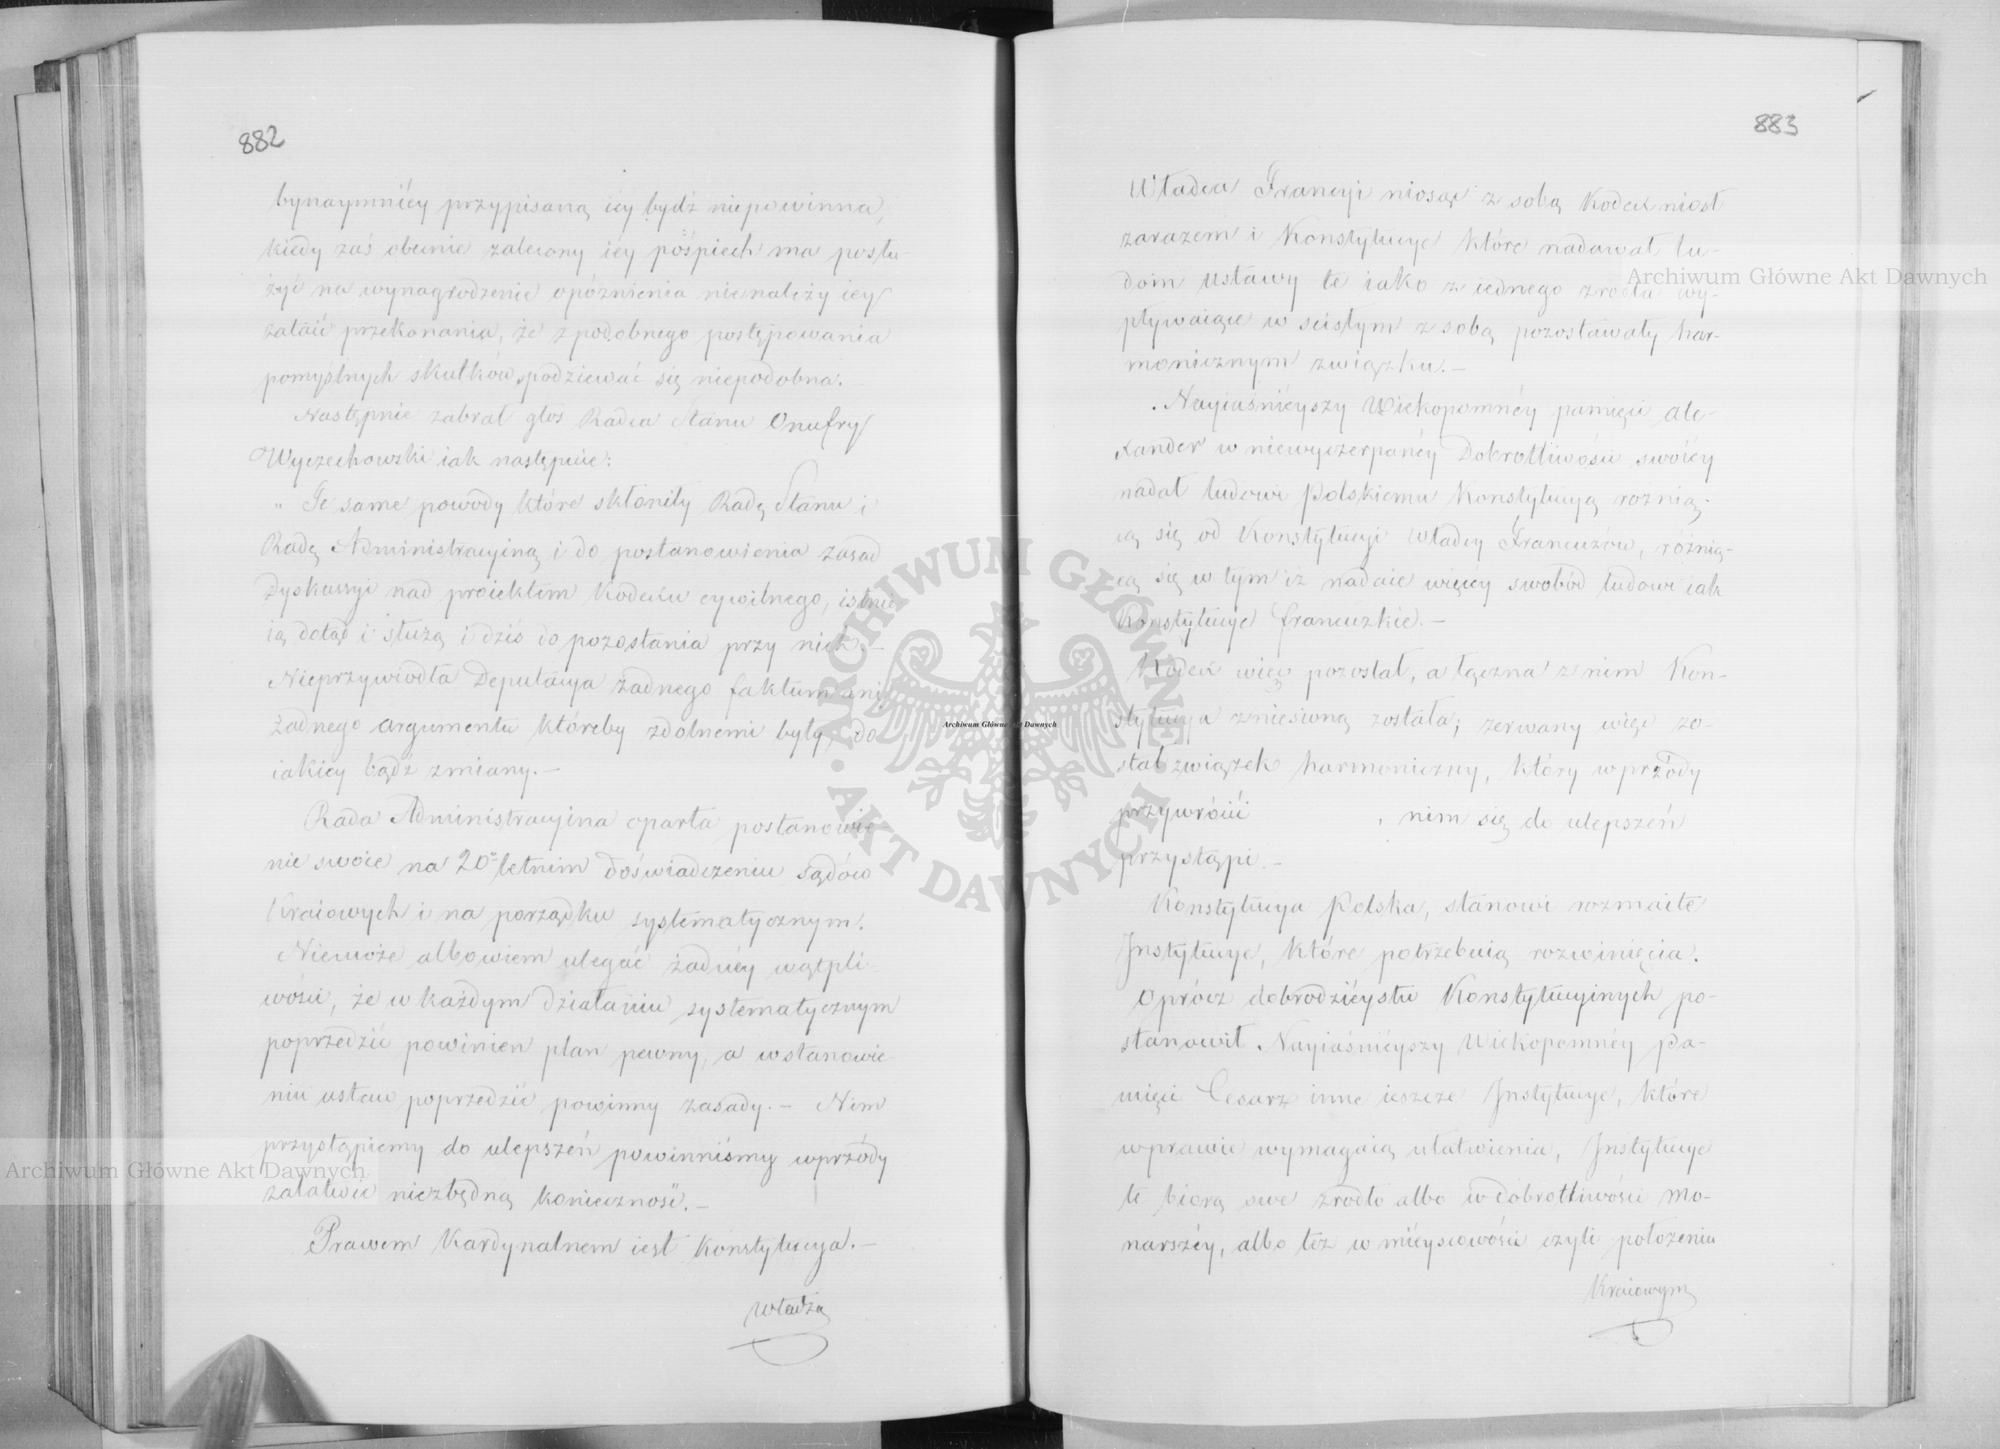 882
bynaymniéy przypisaną iéy bydź niepowinna,
kiedy zaś obecnie zalecony iéy pośpiech ma posłu-
żyć na wynagrodzenie opóźnienia nienależy iéy
zataić przekonania, że z podobnego postępowania
pomyślnych skutków spodziewać się niepodobna. —
Następnie zabrał głos Radca Stanu Onufry
Wyczechowski iak następuie:
„ Te same powody które skłoniły Radę Stanu i
Radę Administracyiną i do postanowienia zasad
Dyskussyi nad proiektem Kodexu cywilnego, istnie
ią dotąd i służą i dziś do pozostania przy nich. —
Nieprzywiodła Deputacya żadnego faktum ani
żadnego argumentu któreby zdolnemi były, do
iakiey bądź zmiany. —
Rada Administracyina oparła postanowie
nie swoie na 20 letnim doświadczeniu sądów
Kraiowych i na porządku systematycznym.
Niemoże albowiem ulegać żadnéy wątpli-
wości, że w każdym działaniu systematycznym
poprzedzić powinien plan pewny, a w stanowie-
niu ustaw poprzedzić powinny zasady. — Nim
przystąpiemy do ulepszeń powinniśmy wprzódy
załatwić niezbędną konieczność. —
Prawem Kardynalnem iest Konstytucya. —
władzą
883
Władca Francyi niosąc z sobą Kodex niosł
zarazem i Konstytucye które nadawał lu-
dom ustawy te iako z iednego zrodła wy-
pływaiące w scisłym z sobą pozostawały har-
monicznym związku. —
Nayiaśnieyszy Wiekopomnéy pamięci Ale-
xander w niewyczerpanéy Dobrotliwości swoiéy
nadał ludowi Polskiemu Konstytucyą roznią-
cą się od Konstytucyi Władcy Francuzów, różnią-
cą się w tym iż nadaie więcey swobód ludowi iak
Konstytucye francuzkie. —
Kodex więc pozostał, a łączna z nim Kon-
stytucya zniesioną została; zerwany więc zo-
stał związek harmoniczny, który wprzódy
przywrócić nim się do ulepszeń
przystąpi. —
Konstytucya Polska, stanowi rozmaite
Instytucye, które potrzebuią rozwinięcia.
Oprócz dobrodzieystw Konstytucyinych po-
stanowił Nayiaśnieyszy Wiekopomnéy Pa-
mięci Cesarz inne ieszcze Instytucye, które
w prawie wymagaią ułatwienia, Instytucye
te biorą swe zrodło albo w dobrotliwości Mo-
narszéy, albo też w mieyscowości czyli położeniu
Kraiowym
Archiwum Główne Akt Dawnych
Archiwum Główne Akt Dawnych
Archiwum Główne Akt Dawnych
ARCHIWUM GŁÓWNE
AKT DAWNYCH